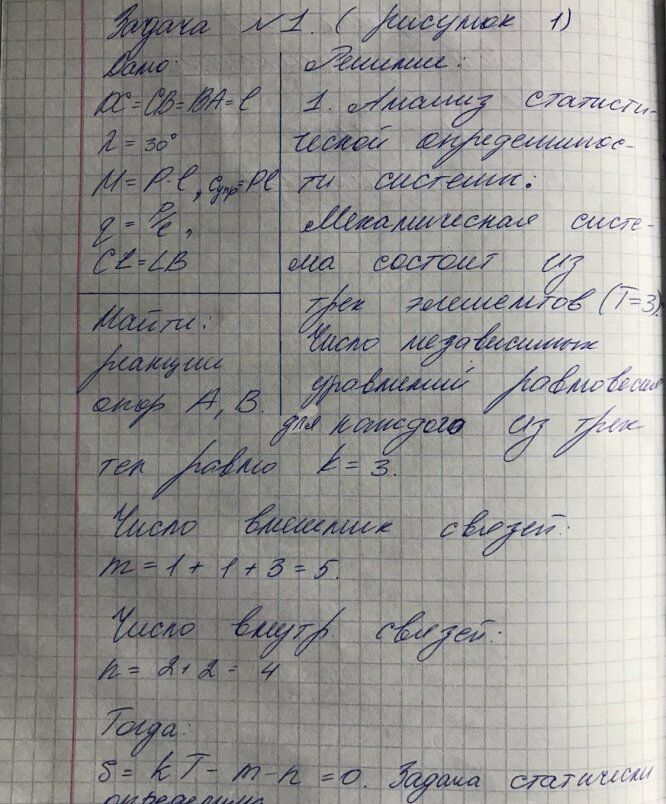 Задача №1. (рисунок 1)
Дано:
DC=CB=BA=l
λ=30°
M=P·l, Cупр=Pl
q=P/l,
CL=LB
Найти:
реакции
опор A, B.
Решение:
1. Анализ статисти-
ческой определиннос-
ти системы:
Механическая систе-
ма состоит из
трех элементов (T=3).
Число независимых
уравнений равновесия
для каждого из трех
тел равно k=3.
Число внешних связей:
m=1+1+3=5.
Число внутр связей:
n=2+2=4
Тогда:
S=kT-m-n=0. Задача статически
определима